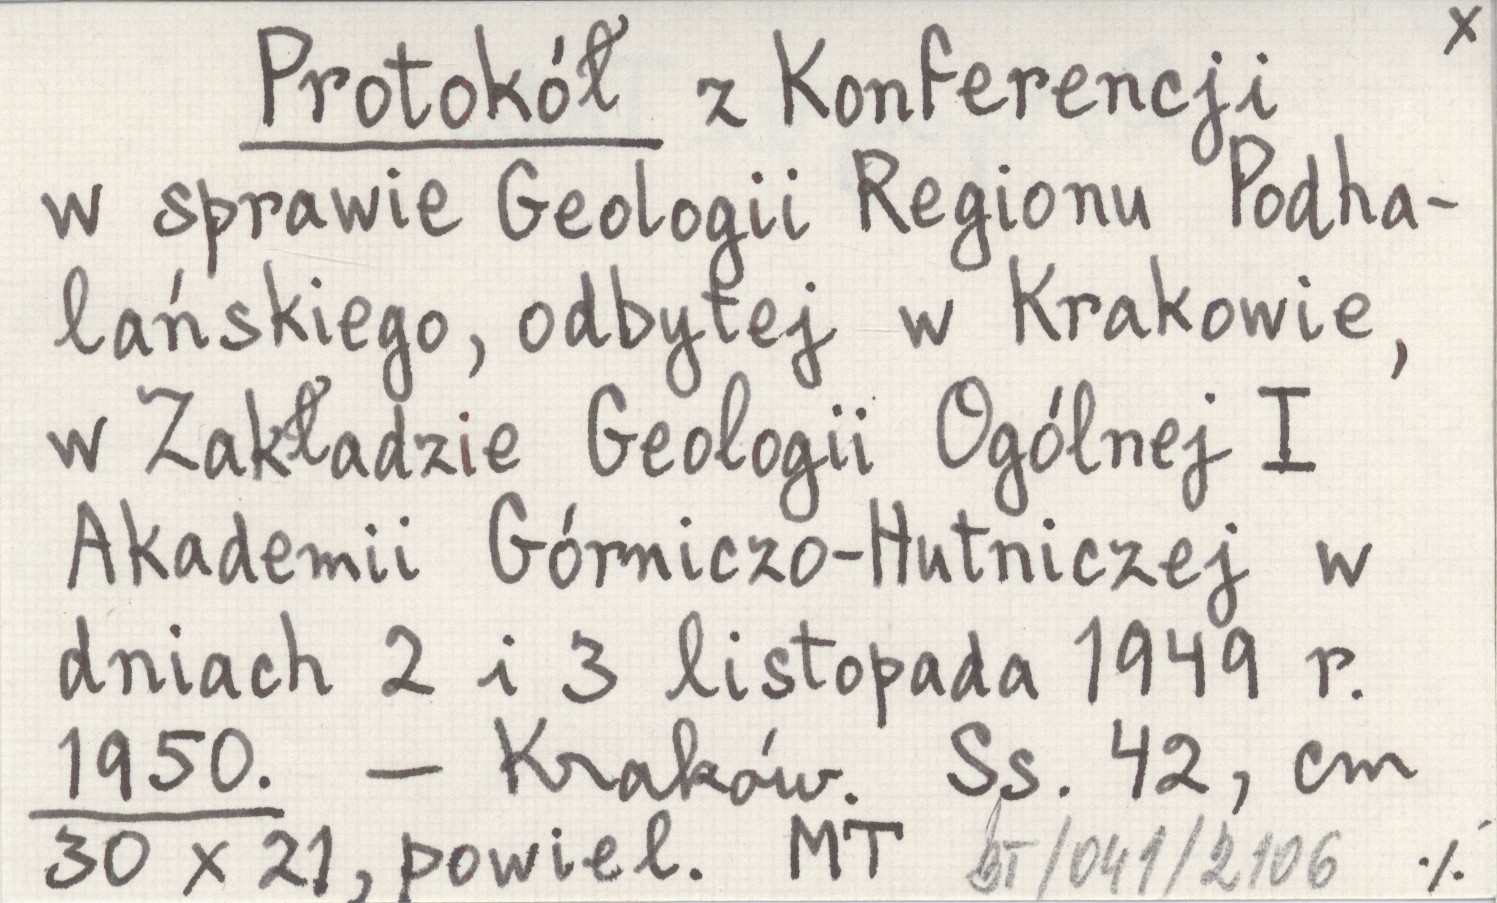 x
Protokół z Konferencji
w sprawie Geologii Regionu Podha-
lańskiego, odbytej w Krakowie,
w Zakładzie Geologii Ogólnej I
Akademii Górniczo-Hutniczej w
dniach 2 i 3 listopada 1949 r.
1950. — Kraków. Ss. 42, cm
30 x 21, powiel. MT /041/2106 ./.